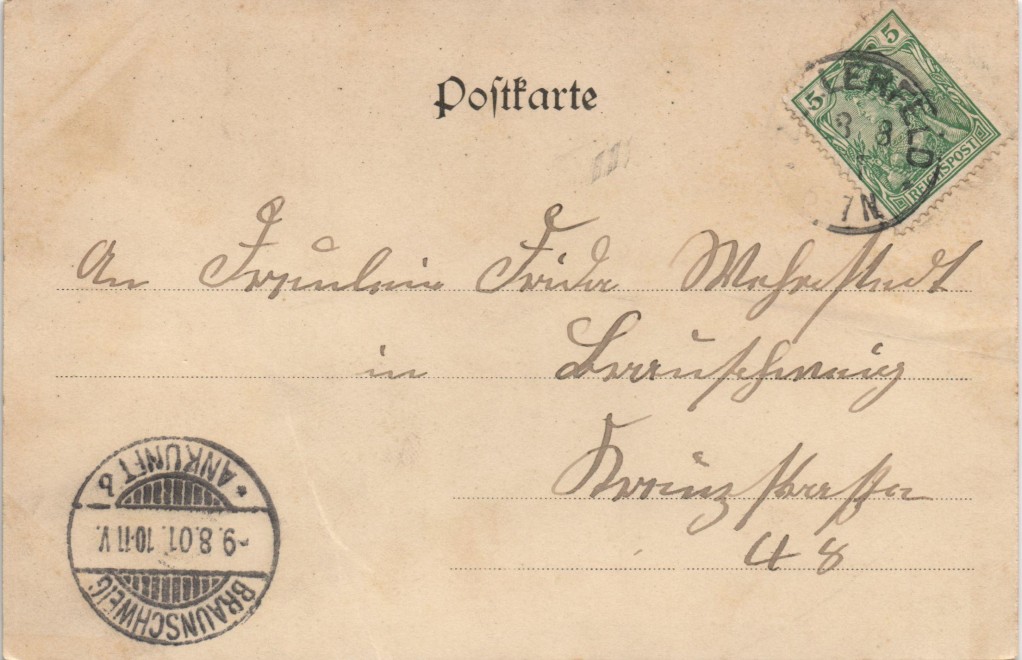 Postkarte
5
5
REICHSPOST
LERFELD
8 8
7 N
An Fräulein Frida Wehrstedt
in Braunschweig
Kreuzstrasse
48
* ANKUNFT 6
-9.8.01. 10-11 V.
BRAUNSCHWEIG